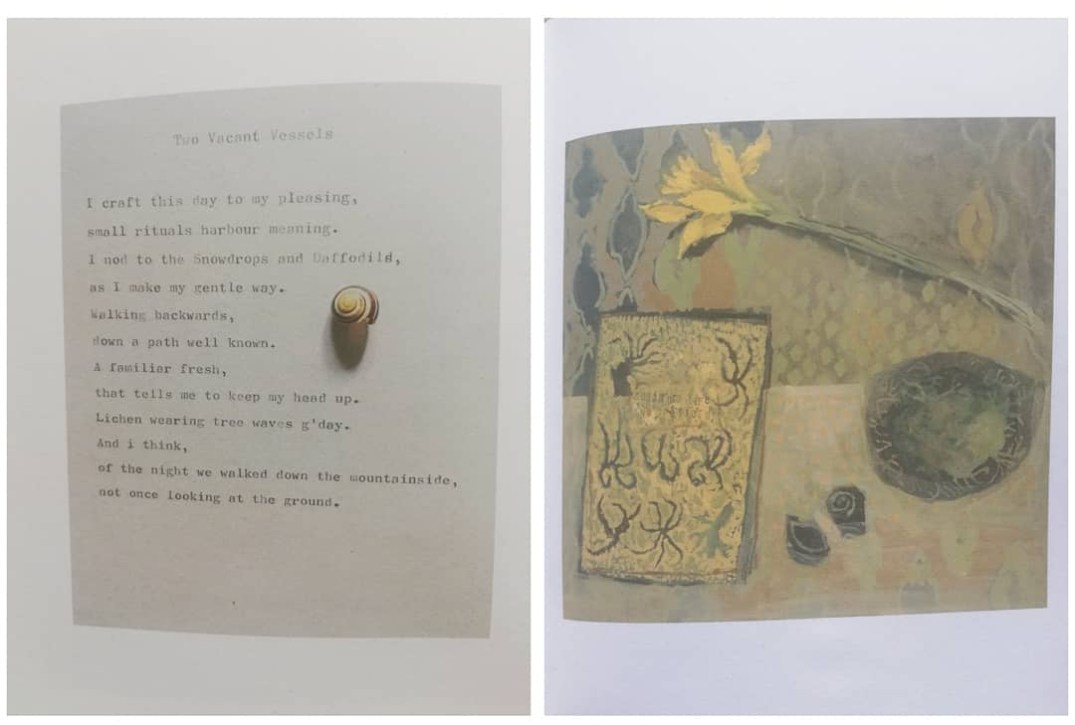 Two Vacant Vessels
I craft this day to my pleasing,
small rituals harbour meaning.
I nod to the Snowdrops and Daffodild,
as I make my gentle way.
Walking backwards,
down a path well known.
A familiar fresh,
that tells me to keep my head up.
Lichen wearing tree waves g'day.
And i think,
of the night we walked down the mountainside,
not once looking at the ground.